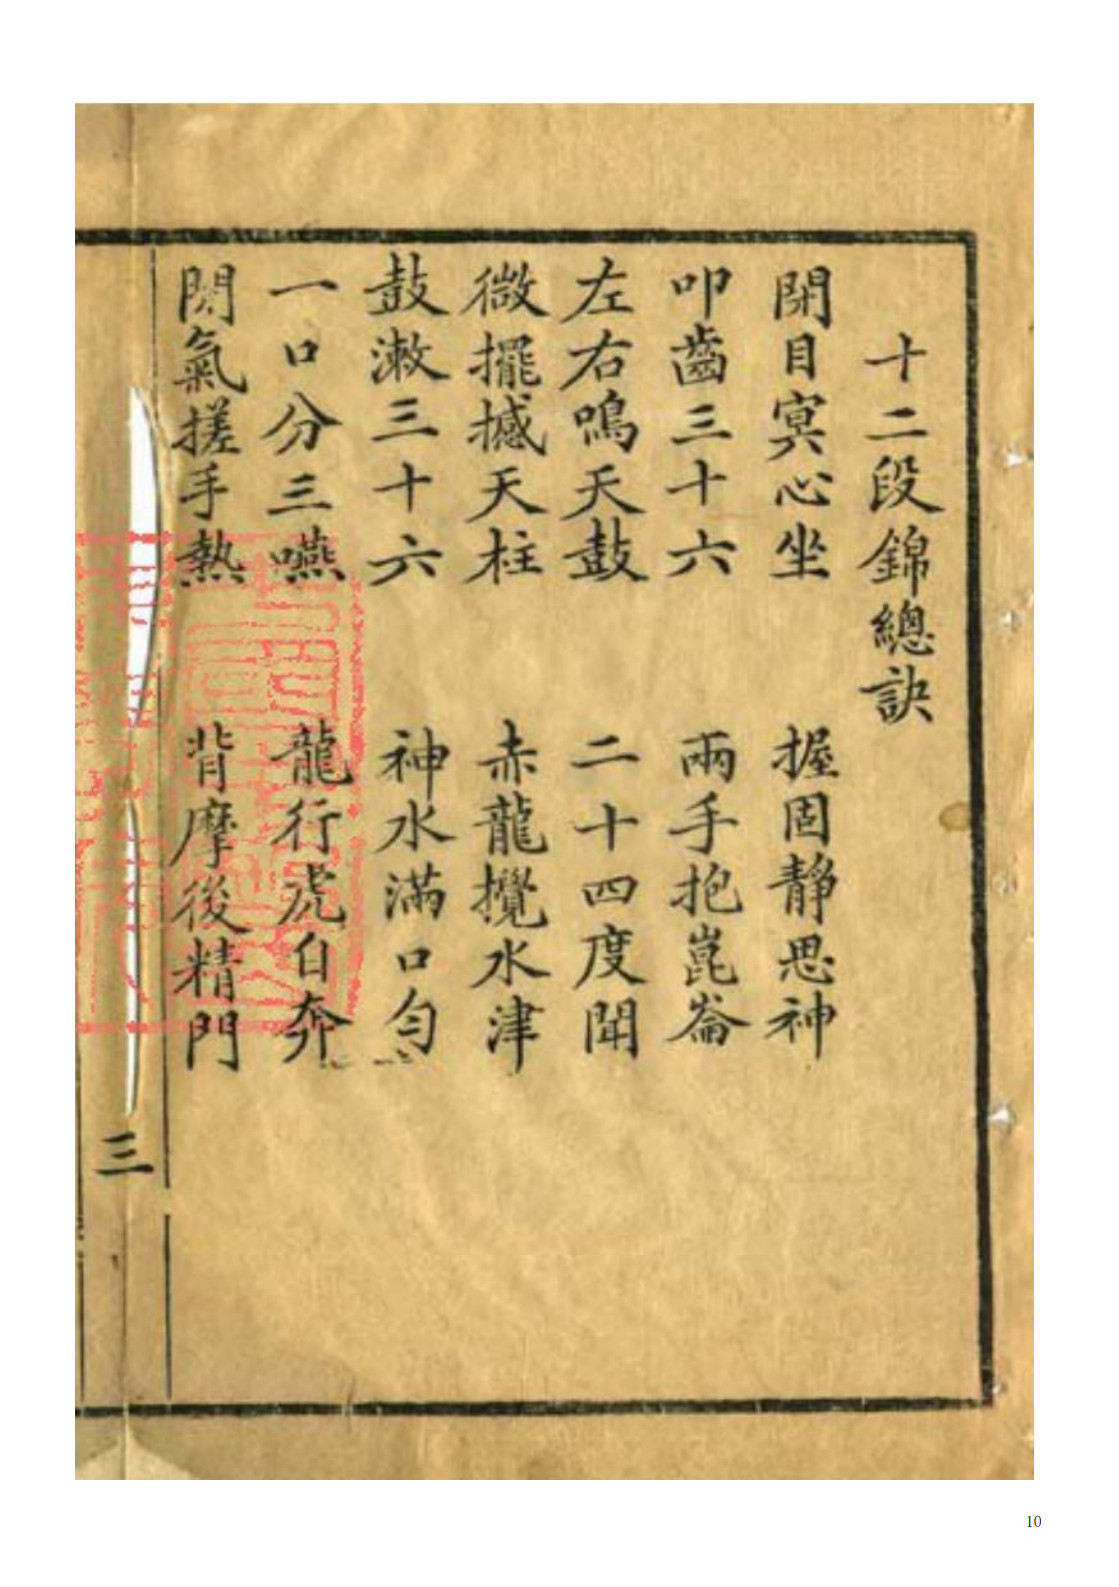 十二段錦總訣
閉目冥心坐　握固靜思神
叩齒三十六　兩手抱崑崙
左右鳴天鼓　二十四度聞
微擺撼天柱　赤龍攪水津
鼓漱三十六　神水滿口勻
一口分三嚥　龍行虎自奔
閉氣搓手熱　背摩後精門
三
10